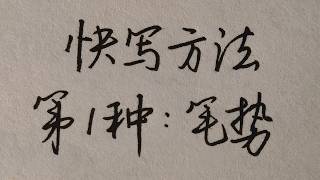 快写方法
第1种：笔势